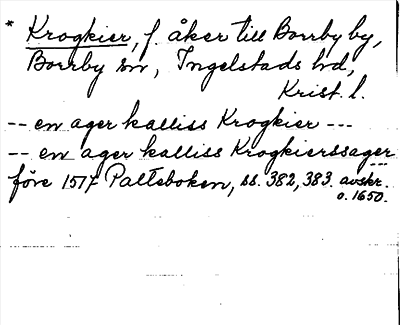 * Krogkier, f. åker till Borrby by,
Borrby sn, Ingelstads hd,
Krist. l.
-- en ager kalliss Krogkier ---
-- en ager kalliss Krogkierssager ---
före 1517 Palteboken, ss. 382, 383. avskr.
o. 1650.